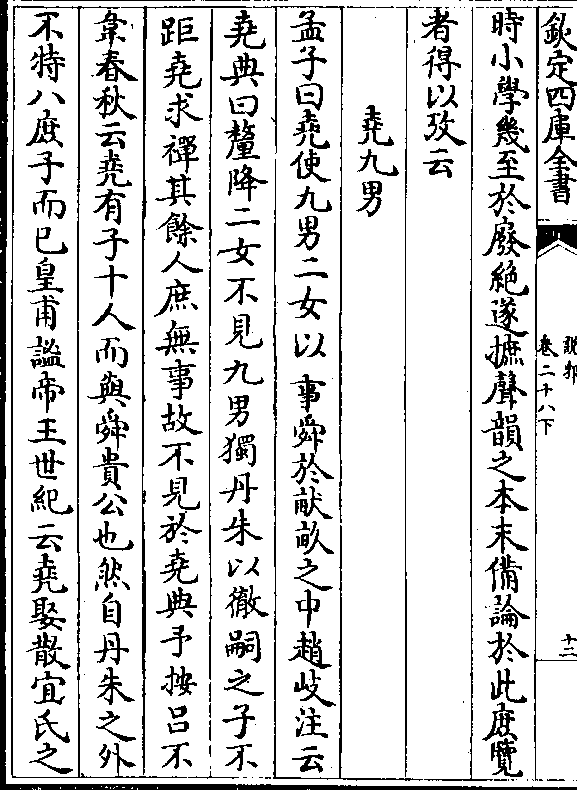 欽定四庫全書
說郛
卷二十八下
十二
時小學幾至於廢絶遂摭聲韻之本末備論於此庶覽
者得以攷云
堯九男
孟子曰堯使九男二女以事舜於畎畝之中趙岐注云
堯典曰釐降二女不見九男獨丹朱以徹嗣之子不
距堯求禪其餘人庶無事故不見於堯典予按吕不
韋春秋云堯有子十人而與舜貴公也然自丹朱之外
不特八庶子而已皇甫謐帝王世紀云堯娶散宜氏之